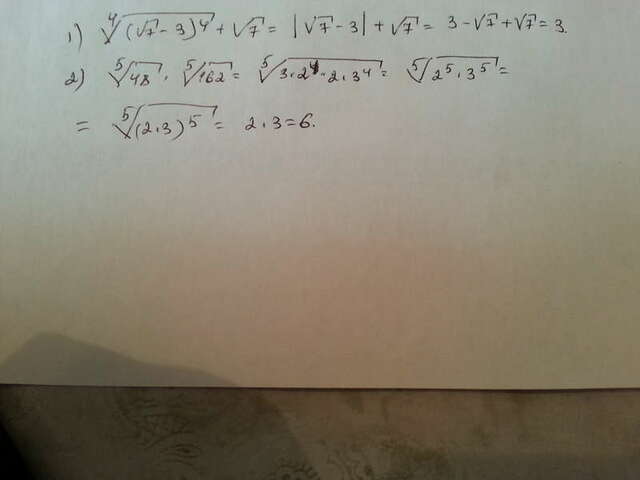 1) ∜(√7 - 3)⁴ + √7 = |√7 - 3| + √7 = 3 - √7 + √7 = 3.
2) ⁵√48 · ⁵√162 = ⁵√(3·2⁴·2·3⁴) = ⁵√(2⁵·3⁵) =
= ⁵√(2·3)⁵ = 2·3 = 6.